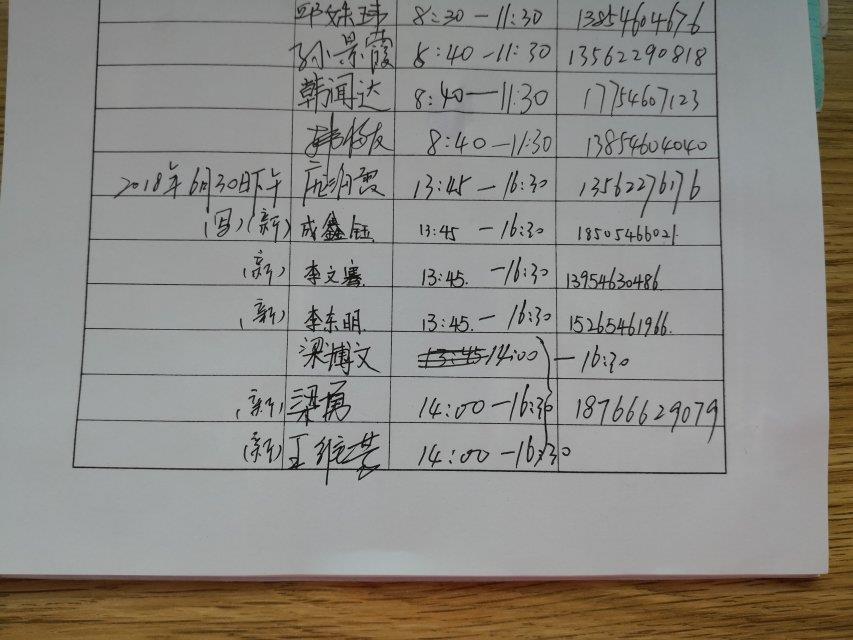 邱姝玮 8:30—11:30 13854604676
孙景霞 8:40—11:30 13562290818
韩闻达 8:40—11:30 17754607123
8:40—11:30 13854604040
2018年6月30日下午 庞润霞 13:45—16:30 13562276176
(写)(新) 成鑫钰 13:45—16:30 18505466021
(新) 李文骞 13:45.—16:30 13954630486
(新) 李东明 13:45.—16:30 15265461966.
梁博文 14:00—16:30
(新) 梁勇 14:00—16:30 18766629079
(新) 王维 14:00—16:30